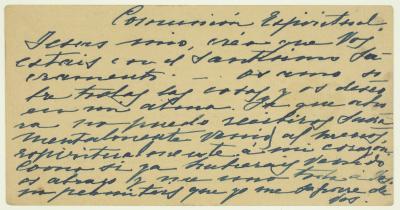 Comunión Espiritual.
Jesus mio, creo que Vos
estais en el Santísimo Sa
cramento. — os amo so
bre todas las cosas y os deseo
en mi alma. Ya que aho
ra no puedo recibiros Sacra
mentalmente venid al menos
espiritualmente a mi corazon.
Como si ya hubierais venido
os abrazo y me uno todo a Vos
no permitais que yo me separe de
Vos.